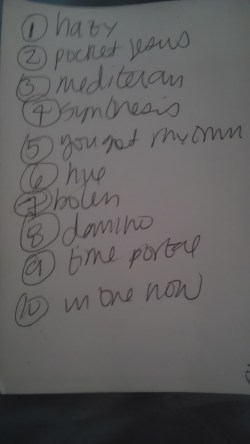 ① hazy
② pocket jesus
③ mediteran
④ synthesis
⑤ you got my
⑥ hye
⑦ bolen
⑧ domino
⑨ time portal
⑩ in the now